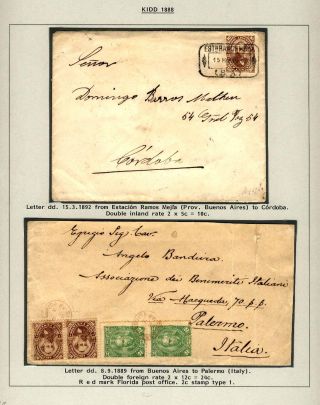 KIDD 1888
15 MAR
Señor
Domingo Barros
54 Gral Paz 54
Córdoba
Letter dd. 15.3.1892 from Estación Ramos Mejía (Prov. Buenos Aires) to Córdoba.
Double inland rate 2 x 5c = 10c.
Egregio Sig. Cav.
Angelo Bandiera
Associazione dei Benemeriti Italiani
Via Macqueda, 70 p.p.
Palermo
Italia
Letter dd. 8.9.1889 from Buenos Aires to Palermo (Italy).
Double foreign rate 2 x 12c = 24c.
Red mark Florida post office. 2c stamp type 1.